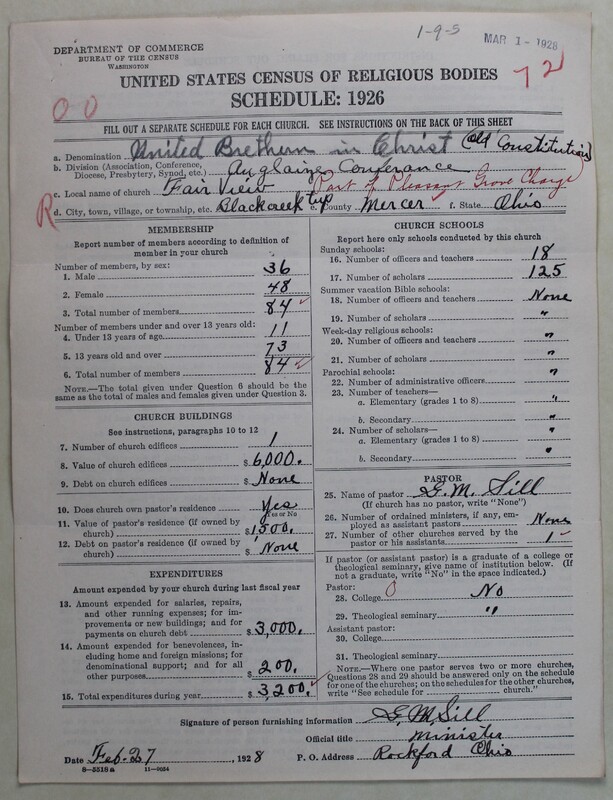 1-9-5
MAR 1 - 1928
DEPARTMENT OF COMMERCE
BUREAU OF THE CENSUS
WASHINGTON
UNITED STATES CENSUS OF RELIGIOUS BODIES
72
SCHEDULE: 1926
00
FILL OUT A SEPARATE SCHEDULE FOR EACH CHURCH. SEE INSTRUCTIONS ON THE BACK OF THIS SHEET
a. Denomination United Brethern in Christ (Old Constitution)
b. Division (Association, Conference, Diocese, Presbytery, Synod, etc.) Auglaize Conferance
c. Local name of church Fair View Part of Pleasant Grove Charge
R d. City, town, village, or township, etc. Blackcreek twp e. County Mercer f. State Ohio
MEMBERSHIP
Report number of members according to definition of
member in your church
Number of members, by sex:
1. Male 36
2. Female 48
3. Total number of members 84
Number of members under and over 13 years old:
4. Under 13 years of age 11
5. 13 years old and over 73
6. Total number of members 84
NOTE.—The total given under Question 6 should be the
same as the total of males and females given under Question 3.
CHURCH BUILDINGS
See instructions, paragraphs 10 to 12
7. Number of church edifices 1
8. Value of church edifices $6,000.
9. Debt on church edifices $ None
10. Does church own pastor's residence? Yes
Yes or No
11. Value of pastor's residence (if owned by
church) $1,500.
12. Debt on pastor's residence (if owned by
church) $ None
EXPENDITURES
Amount expended by your church during last fiscal year
13. Amount expended for salaries, repairs,
and other running expenses; for im-
provements or new buildings; and for
payments on church debt $3,000.
14. Amount expended for benevolences, in-
cluding home and foreign missions; for
denominational support; and for all
other purposes $ 200.
15. Total expenditures during year $3,200.
CHURCH SCHOOLS
Report here only schools conducted by this church
Sunday schools:
16. Number of officers and teachers 18
17. Number of scholars 125
Summer vacation Bible schools:
18. Number of officers and teachers None
19. Number of scholars "
Week-day religious schools:
20. Number of officers and teachers "
21. Number of scholars "
Parochial schools:
22. Number of administrative officers "
23. Number of teachers—
a. Elementary (grades 1 to 8) "
b. Secondary "
24. Number of scholars—
a. Elementary (grades 1 to 8) "
b. Secondary "
PASTOR
25. Name of pastor G. M. Sill
(If church has no pastor, write "None")
26. Number of ordained ministers, if any, em-
ployed as assistant pastors None
27. Number of other churches served by the
pastor or his assistants 1
If pastor (or assistant pastor) is a graduate of a college or
theological seminary, give name of institution below. (If
not a graduate, write "No" in the space indicated.)
Pastor: 0
28. College No
29. Theological seminary "
Assistant pastor:
30. College
31. Theological seminary
NOTE.—Where one pastor serves two or more churches,
Questions 28 and 29 should be answered only on the schedule
for one of the churches; on the schedules for the other churches,
write "See schedule for church."
Signature of person furnishing information G. M. Sill
Official title Minister
Date Feb. 27, 1928 P. O. Address Rockford Ohio
8-5518 a 11-9024